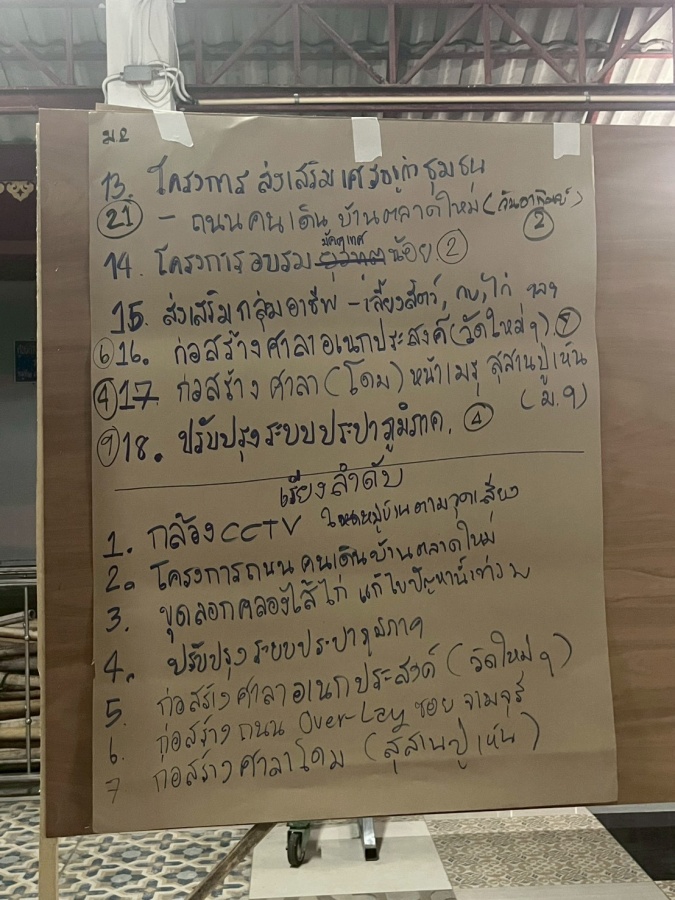 ม 2
13. โครงการ ส่งเสริมเศรษฐกิจชุมชน
21 - ถนนคนเดิน บ้านตลาดใหม่ (วันอาทิตย์) 2
14. โครงการอบรมมัคคุเทศน้อย. 2
15. ส่งเสริมกลุ่มอาชีพ - เลี้ยงสัตว์, กบ, ไก่ ฯลฯ
6 16. ก่อสร้างศาลาอเนกประสงค์ (วัดใหม่ฯ)
4 17. ก่อสร้าง ศาลา (โดม) หน้าเมรุ สุสานปู่เห้น
(ม.9)
9 18. ปรับปรุงระบบประปาภูมิภาค. 4
เรียงลำดับ
1. กล้อง CCTV ในหมู่บ้านตามจุดเสี่ยง
2. โครงการถนน คนเดินบ้านตลาดใหม่
3. ขุดลอกคลองไส้ไก่ แก้ไขปัญหาน้ำท่วม
4. ปรับปรุงระบบประปาภูมิภาค
5. ก่อสร้างศาลาอเนกประสงค์ (วัดใหม่ฯ)
6. ก่อสร้างถนน Over-Lay ซอย จามจุรี
7 ก่อสร้างศาลาโดม (สุสานปู่เห้น)